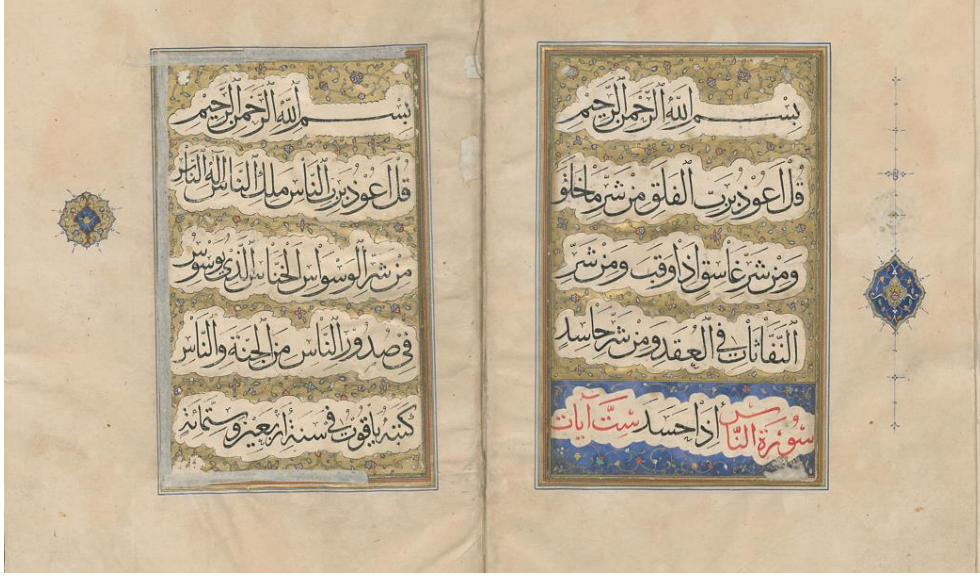 بسم الله الرحمن الرحيم
قل اعوذ برب الفلق من شر ما خلق
ومن شر غاسق اذا وقب ومن شر
النفاثات في العقد ومن شر حاسد
سورة الناس اذا حسد ست آيات
بسم الله الرحمن الرحيم
قل اعوذ برب الناس ملك الناس اله الناس
من شر الوسواس الخناس الذي يوسوس
في صدور الناس من الجنة والناس
كتبه ياقوت في سنة أربعين وستمائة